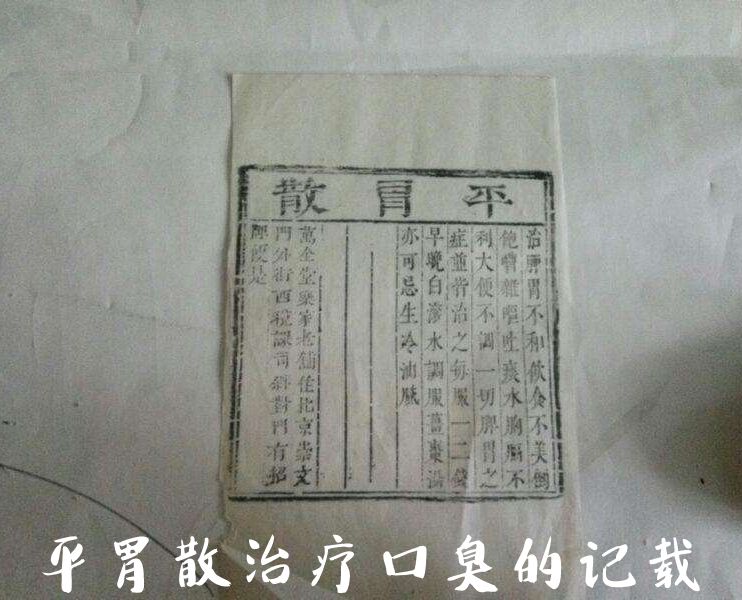 平胃散
治脾胃不和飲食不美倒
飽嘈雜嘔吐痰水胸膈不
利大便不調一切脾胃之
症並皆治之每服一二錢
早晚白滚水調服薑棗湯
亦可忌生冷油膩
萬全堂樂家老舖住北京崇文
門外街西稅課司斜對門有招
牌便是
平胃散治疗口臭的记载